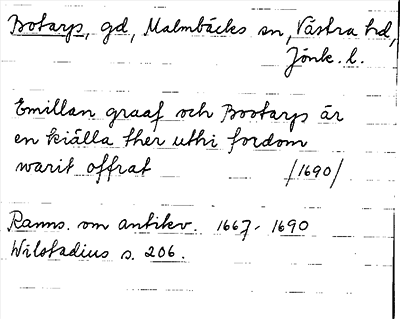 Botarps, gd, Malmbäcks sn, Västra hd,
Jönk. l.
Emillan graaf och Bootarps är
en kiälla ther uthi fordom
warit offrat /1690/
Ranns. om antikv. 1667-1690
Wilstadius s. 206.